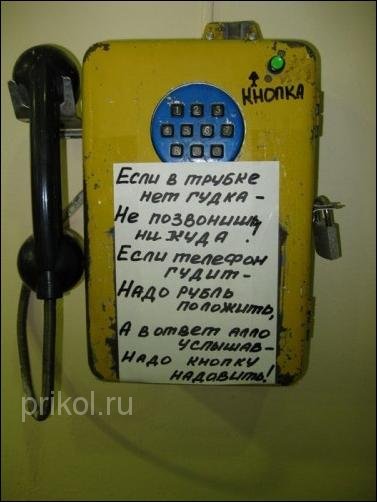 КНОПКА
1 2 3
4 5 6 7
8 9 0
Если в трубке
нет гудка –
Не позвонишь
ни куда!
Если телефон
гудит –
Надо рубль
положить,
А в ответ алло
услышав –
Надо кнопку
надавить!
prikol.ru